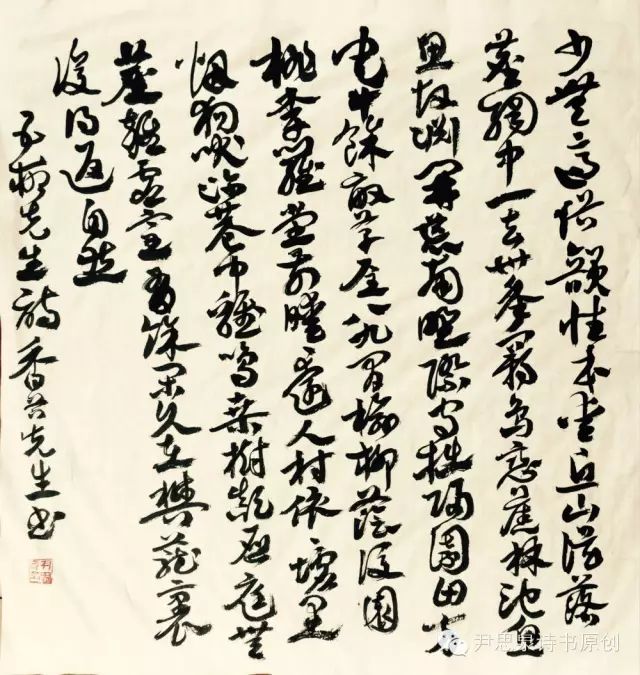 少無適俗韻性本愛丘山誤落
塵網中一去卅年羈鳥戀舊林池魚
思故淵開荒南野際守拙歸園田方
宅十餘畝草屋八九間榆柳蔭後園
桃李羅堂前曖々遠人村依々墟里
烟狗吠深巷中雞鳴桑樹顛戶庭無
塵雜虛室有餘閑久在樊籠裏
復得返自然
五柳先生詩 香先生書
尹思泉诗书原创